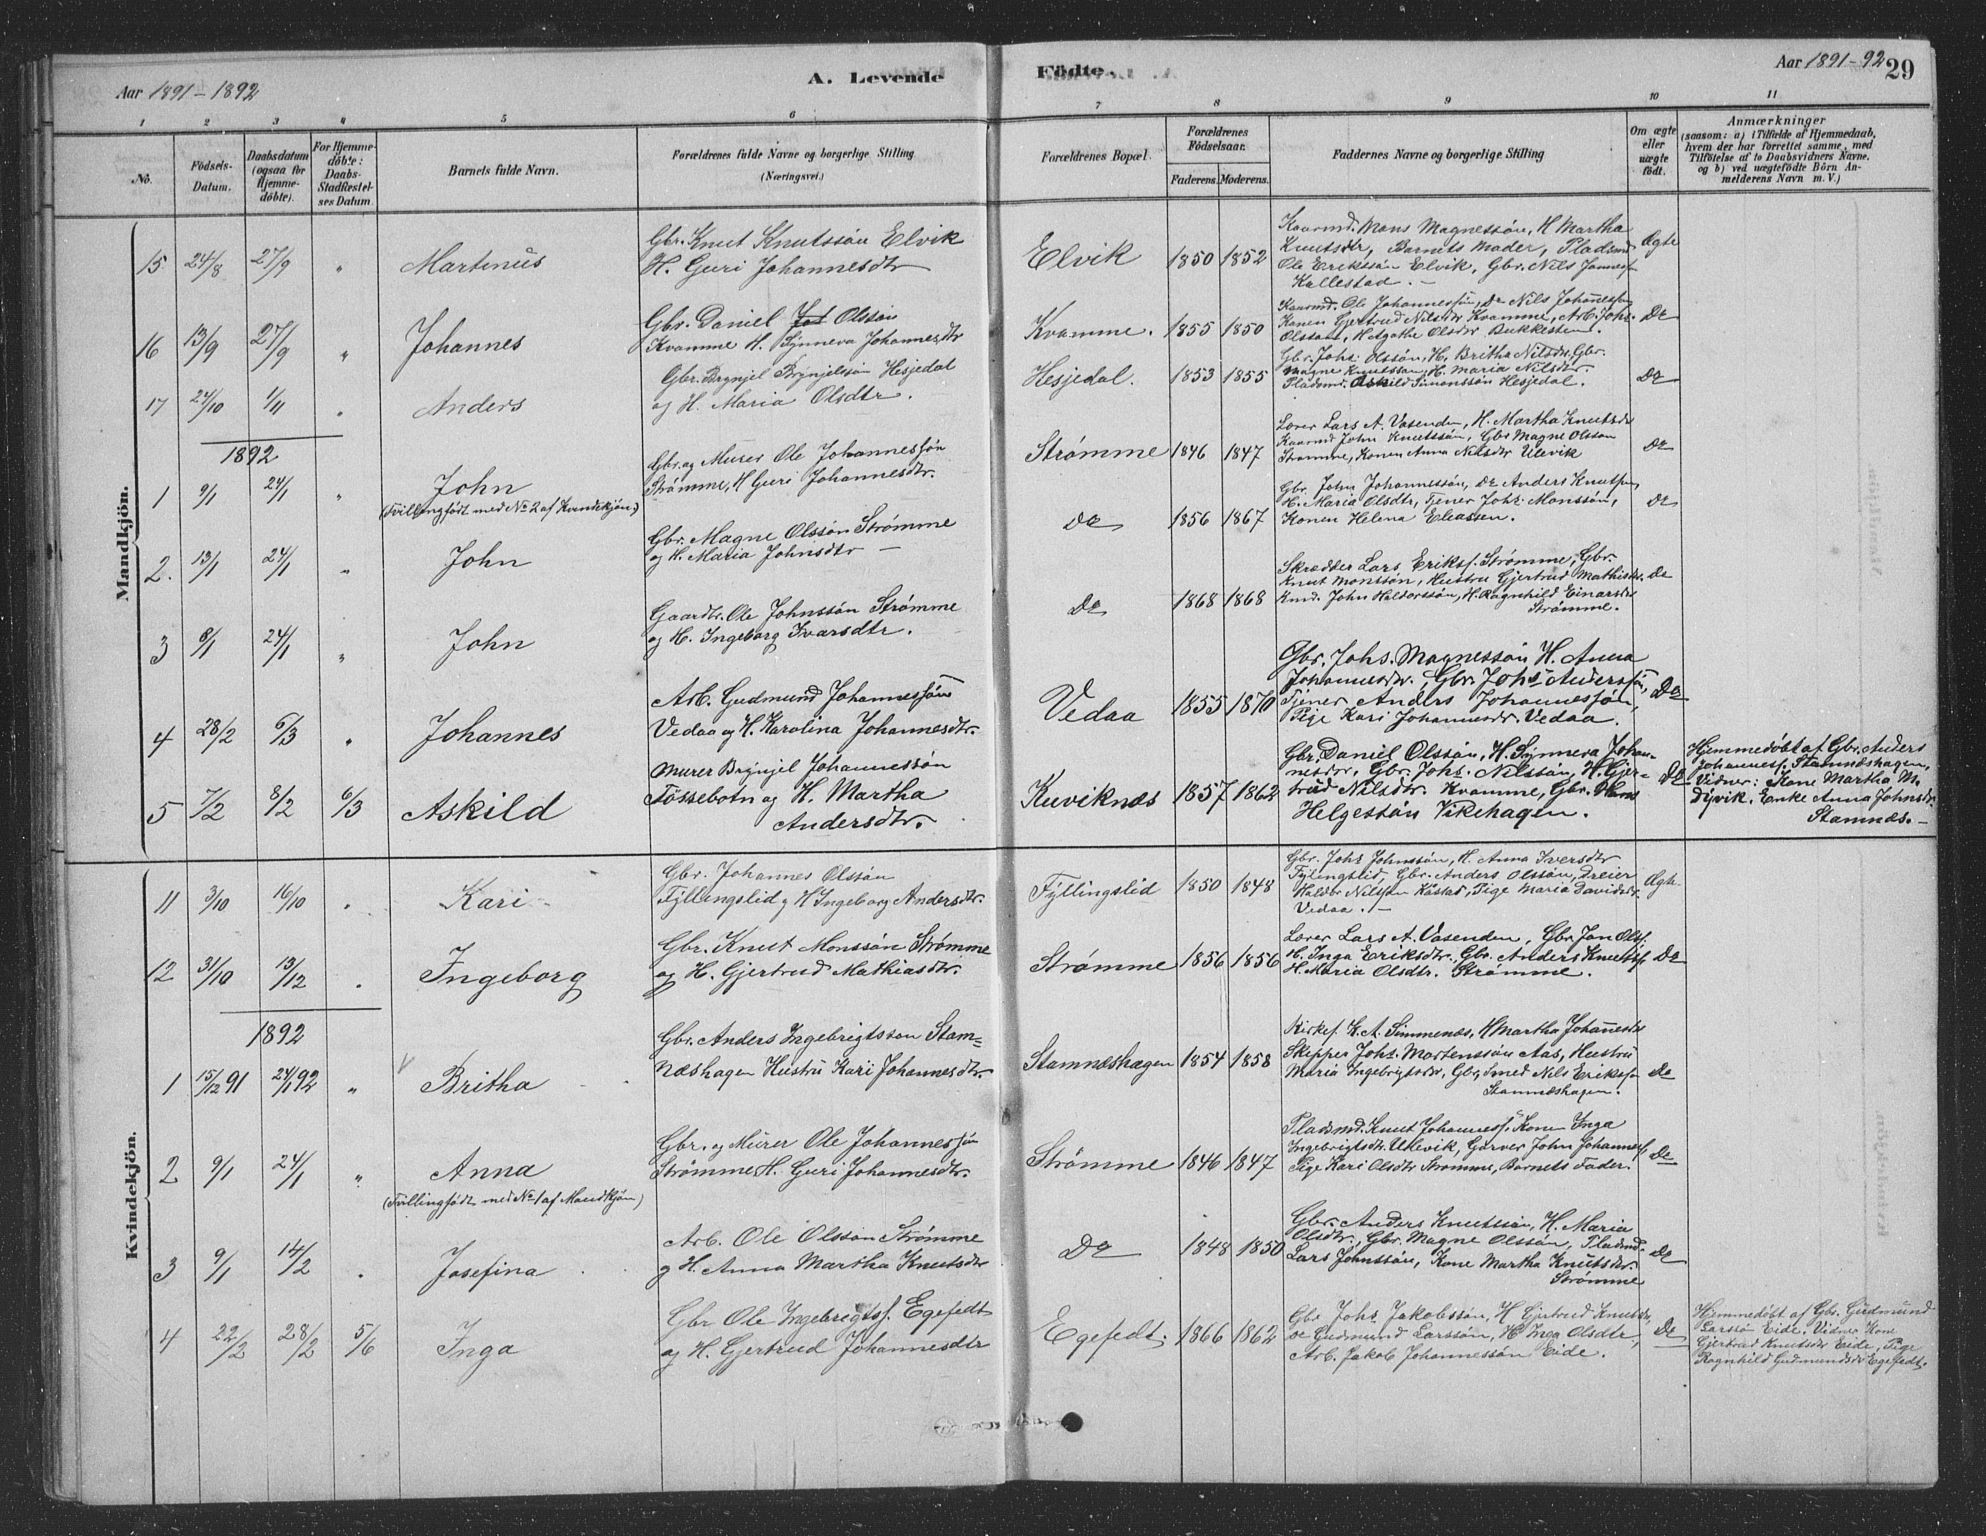 Aar 1891-1892
A. Levende
Födte.
Aar 1891-92
29
1 2 3 4 5 6 7 8 9 10 11
No.
Födsels-Datum.
Daabsdatum (ogsaa for Hjemmedöbte).
For Hjemmedöbte: Daabs-Stadfæstelses Datum
Barnets fulde Navn.
Forældrenes fulde Navne og borgerlige Stilling
(Næringsvei.)
Forældrenes Bopæl.
Forældrenes Födselsaar.
Faderens. Moderens.
Faddernes Navne og borgerlige Stilling
Om ægte eller uægte födt.
Anmærkninger
(saasom: a) i Tilfælde af Hjemmedaab,
hvem der har forrettet samme, med
Tilföielse af to Daabsvidners Navne.
og b) ved uægtefödte Börn An-
melderens Navn m. V.)
Mandkjön.
15 24/8 27/9 "
Martinus
Gbr. Knut Knutssön Elvik
H. Guri Johannesdtr
Elvik 1850 1852
Kaarmd. Mons Magnessön, H Martha
Knutsdtr, Barnets Moder, Pladsmd
Ole Erikssön Elvik, Gbr. Nils Jonness.
Kallestad. -
Ægte
16 13/9 27/9 "
Johannes
Gbr. Daniel Olssön
Kvamme H. Synneva Johannesdtr
Kvamme. 1855 1850
Kaarmd. Ole Johannessön, Do Nils Johannessön
Konen Gjertrud Nilsdtr Kvamme, Arb. Johs.
Olsson, H Agathe Olsdtr Bukkesten.
Do
17 24/10 1/11 "
Anders
Gbr. Brynjel Brynjelssön Hesjedal
og H. Maria Olsdtr.
Hesjedal. 1853 1855
Gbr. Johs. Olssön, H. Britha Nilsdtr, Gbr.
Magne Knutsson, H. Maria Nilsdtr
Pladsmd. Askild Simonssön Hesjedal.
Do
1892
1 9/1 24/1 "
John
(Tvillingfödt med No 2 af Kvindekjön)
Gbr. og Murer Ole Johannessön
Strömme, H Guri Johannesdtr.
Strømme 1846 1847
Lærer Lars A. Vasenden, H. Martha Knutsdr
Kaarmd John Knutssön, Gbr Magne Olsson
Strømme, Konen Anna Nilsdtr Ulevik
Do
2. 13/1 24/1 "
John
Gbr. Magne Olssön Strømme
og H. Maria Johnsdtr -
Do 1856 1867
Gbr. John Johannessön, Do Anders Knutssön,
H. Maria Olsdtr, Tjener Johs. Monssön,
Konen Helena Eliassen.
Do
3 8/1 24/1 "
John
Gaardbr. Ole Johnssön Strømme
og H. Ingeborg Ivarsdtr.
Do 1868 1868
Skrædder Lars Eriks. Strømme, Gbr.
Knut Monssön, Hustru Gjertrud Mathisdr.
Kmd. John Haldorssön, H. Ragnhild Einarsdr
Strömme.
Do
4 28/2 6/3 "
Johannes
Arb. Gudmund Johannessön
Vedaa og H. Karolina Johannesdtr.
Vedaa 1855 1870
Gbr. Johs. Magnessön H. Anna
Johannesdtr., Gbr. Johs. Anderssön,
Tjener Anders Johannessön,
Pige Kari Johannesdr. Vedaa.
Do
5 7/2 8/2 6/3
Askild
Murer Brynjel Johannessön
Tössebotn og H. Martha
Andersdtr.
Kuviknæs 1857 1862
Gbr. Daniel Olssön, H. Synneva Johan-
nesdtr, Gbr. Johs. Nilssön, H. Gjer-
trud Nilsdtr. Kvamme, Gbr. Hans
Helgessön Vikehagen.
Do
Hjemmedöbt af Gbr. Anders
Johanness. Stamneshagen,
Vidner: Kone Martha M.
Dyvik, Enke Anna Johnsdr.
Stamnæs. -
Kvindekjön.
11 3/10 16/10 "
Kari
Gbr. Johannes Olssön
Fyllingslid og H Ingeborg Andersdtr.
Fyllingslid 1850 1848
Gbr. Johs Johnssön, H. Anna Iversdtr
Fyllingslid, Gbr. Anders Olsson, Dreier
Haldor Nilssen Kastad, Pige Maria Davidsdr
Vedaa. -
Ægte
12 31/10 13/12 "
Ingeborg
Gbr. Knut Monssön Strømme
og H. Gjertrud Mathiasdtr.
Strømme 1856 1856
Lærer Lars A. Vasenden, Gbr Jon Olss.
H. Inga Eriksdtr. Gbr. Anders Knuts.
H. Maria Olsdtr. Strømme.
Do
1892
1 15/12 91 24/1 92 "
Britha
Gbr. Anders Ingebrigtsson Stam-
næshagen Hustru Kari Johannesdtr.
Stamneshagen 1854 1858
Kirkes. K. A. Simmenæs, H Martha Johannesdr
Skipper Johs. Mortenssön Aas, Hustru
Maria Ingebrigtsdr, Gbr, Smed Nils Erikssön
Stamneshagen.
Do
2 9/1 24/1 "
Anna
(Tvillingfödt med No 1 af Mandkjön)
Gbr. og Murer Ole Johannessön
Strømme H. Guri Johannesdtr.
Strømme 1846 1847
Pladsmd. Knut Johanness. Kone Inga
Ingebrigtsdtr Ulevik, Garver John Johanness.
Pige Kari Olsdtr Strømme, Barnets Fader.
Do
3 9/1 14/2 "
Josefina
Arb. Ole Olsson Strømme
og H. Anna Martha Knutsdtr
Do 1848 1850
Gbr. Anders Knutssön, H. Maria
Olsdtr., Gbr. Magne Olssön, Pladsmd.
Lars Johnssön, Kone Martha Knutsdtr.
Strømme
Do
4 22/2 28/2 5/6
Inga
Gbr Ole Ingebrigts. Egefedt
og H. Gjertrud Johannesdtr
Egefedt. 1866 1862
Gbr Johs Jakobssön, H Gjertrud Knutsdr.
Do Gudmund Larssön, H. Inga Olsdtr,
Arb. Jakob Johannessön Eide.
Do
Hjemmedöbt af Gbr. Gudmund
Larssø Eide. Vidner Kone
Gjertrud Knutsdr Eide, Pige
Ragnhild Gudmundsdr Egefedt.